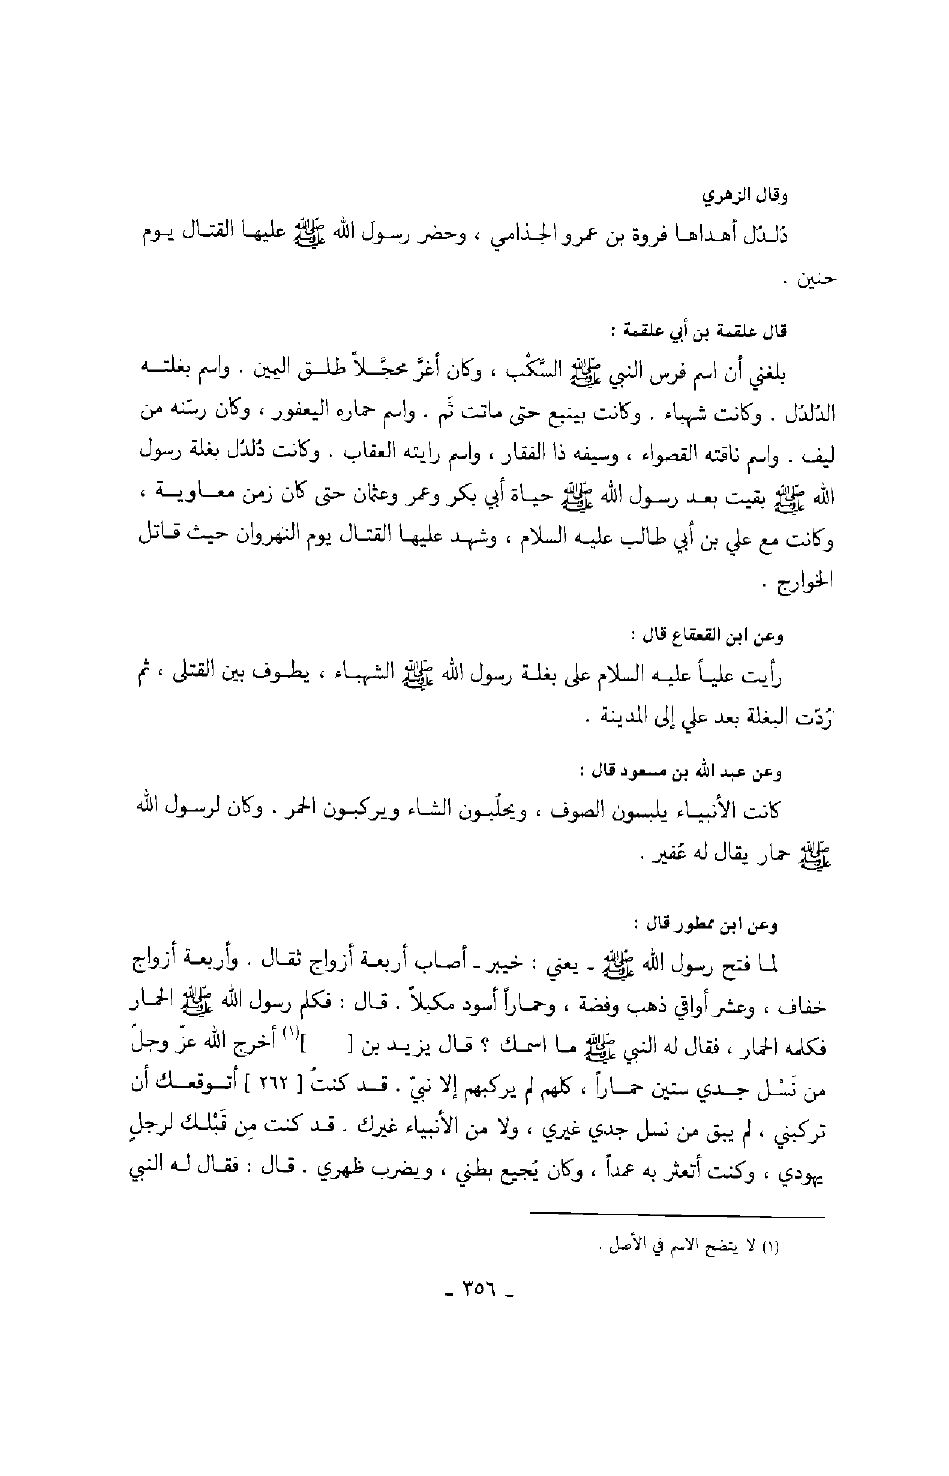 وقال الزهري
دُلدُل أهداها فروة بن عمرو الجذامي ، وحضر رسول الله ﷺ عليها القتال يوم
حنين .
قال علقمة بن أبي علقمة :
بلغني أن اسم فرس النبي ﷺ السَّكْب ، وكان أغرَّ محجَّلاً طلق اليمين . واسم بغلته
الدُلدُل . وكانت شهباء . وكانت بينبع حتى ماتت ثَم . واسم حماره اليعفور ، وكان رسَنه من
ليف . واسم ناقته القصواء ، وسيفه ذا الفقار ، واسم رايته العقاب . وكانت دُلدُل بغلة رسول
الله ﷺ بقيت بعد رسول الله ﷺ حياة أبي بكر وعمر وعثمان حتى كان زمن معاوية ،
وكانت مع علي بن أبي طالب عليه السلام ، وشهد عليها القتال يوم النهروان حيث قاتل
الخوارج .
وعن ابن القعقاع قال :
رأيت علياً عليه السلام على بغلة رسول الله ﷺ الشهباء ، يطوف بين القتلى ، ثم
رُدّت البغلة بعد علي إلى المدينة .
وعن عبد الله بن مسعود قال :
كانت الأنبياء يلبسون الصوف ، ويحلُبون الشاء ويركبون الحمر . وكان لرسول الله
ﷺ حمار يقال له عُفير .
وعن ابن مطور قال :
لما فتح رسول الله ﷺ - يعني : خيبر - أصاب أربعة أزواج ثقال . وأربعة أزواج
خفاف ، وعشر أواقي ذهب وفضة ، وحماراً أسود مكبلاً . قال : فكلم رسول الله ﷺ الحمار
فكلمه الحمار ، فقال له النبي ﷺ ما اسمك ؟ قال يزيد بن [ ](١) أخرج الله عزّ وجلّ
من نَسْل جدي ستين حماراً ، كلهم لم يركبهم إلا نبيّ . قد كنتُ [ ٢٦٢ ] أتوقعك أن
تركبني ، لم يبق من نسل جدي غيري ، ولا من الأنبياء غيرك . قد كنت مِن قَبْلك لرجلٍ
يهودي ، وكنت أتعثر به عمداً ، وكان يُجيع بطني ، ويضرب ظهري . قال : فقال له النبي
(١) لا يتضح الاسم في الأصل .
- ٣٥٦ -